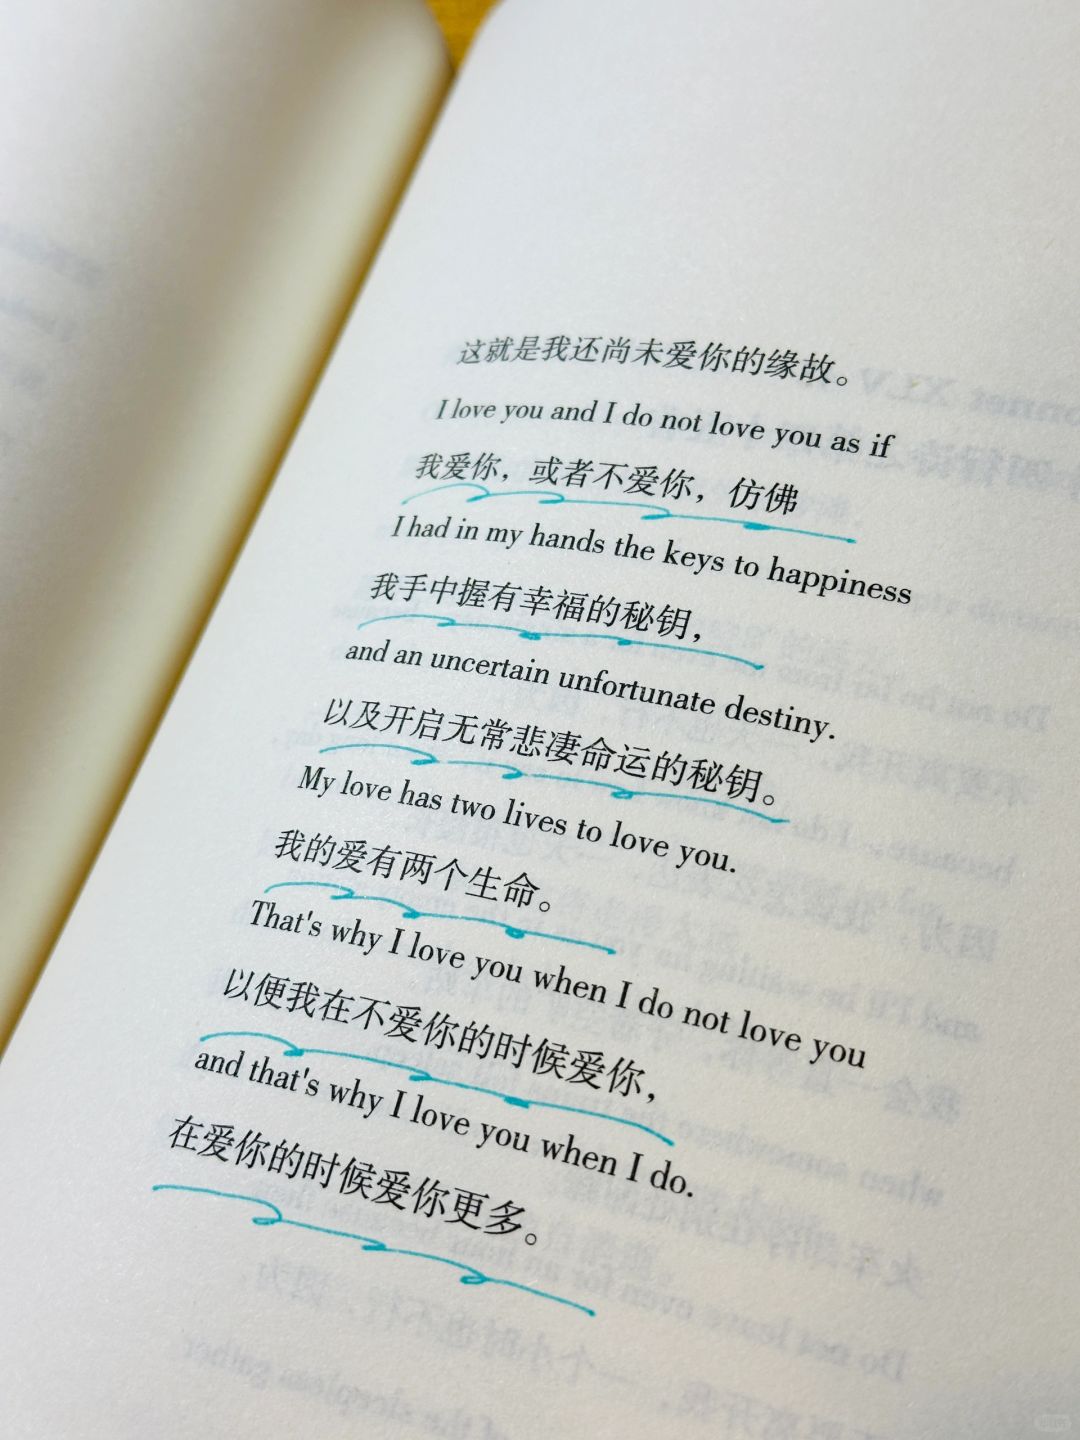 这就是我还尚未爱你的缘故。
I love you and I do not love you as if
我爱你，或者不爱你，仿佛
I had in my hands the keys to happiness
我手中握有幸福的秘钥，
and an uncertain unfortunate destiny.
以及开启无常悲凄命运的秘钥。
My love has two lives to love you.
我的爱有两个生命。
That's why I love you when I do not love you
以便我在不爱你的时候爱你，
and that's why I love you when I do.
在爱你的时候爱你更多。